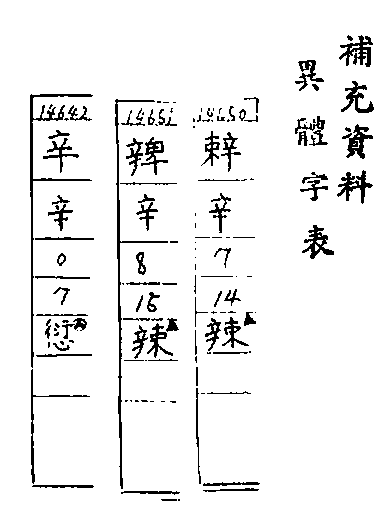 補充資料
異體字表
14650
辛
7
14
辣
14651
辛
8
15
辣
14642
辛
辛
0
7
愆